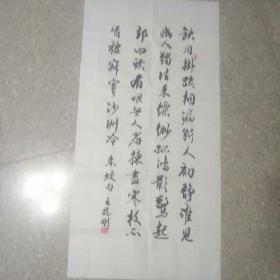 缺月掛疏桐漏断人初静谁见
幽人獨往来缥缈孤鸿影驚起
却回头有恨無人省揀盡寒枝不
肯栖寂寞沙洲冷 東坡句